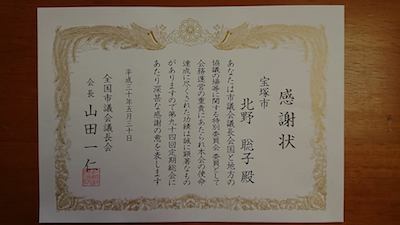 感謝状
宝塚市
北野 聡子 殿
あなたは市議会議長会国と地方の
協議の場等に関する特別委員会委員として
会務運営の重責にあたられ本会の使命
達成に尽くされた功績は誠に顕著なもの
がありますので第九十四回定期総会に
あたり深甚な感謝の意を表します
平成三十年五月三十日
全国市議会議長会
会長 山田一仁